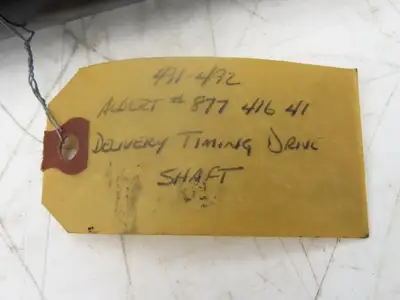 491-492
ALBERT # 877 416 41
DELIVERY TIMING DRIVE
SHAFT